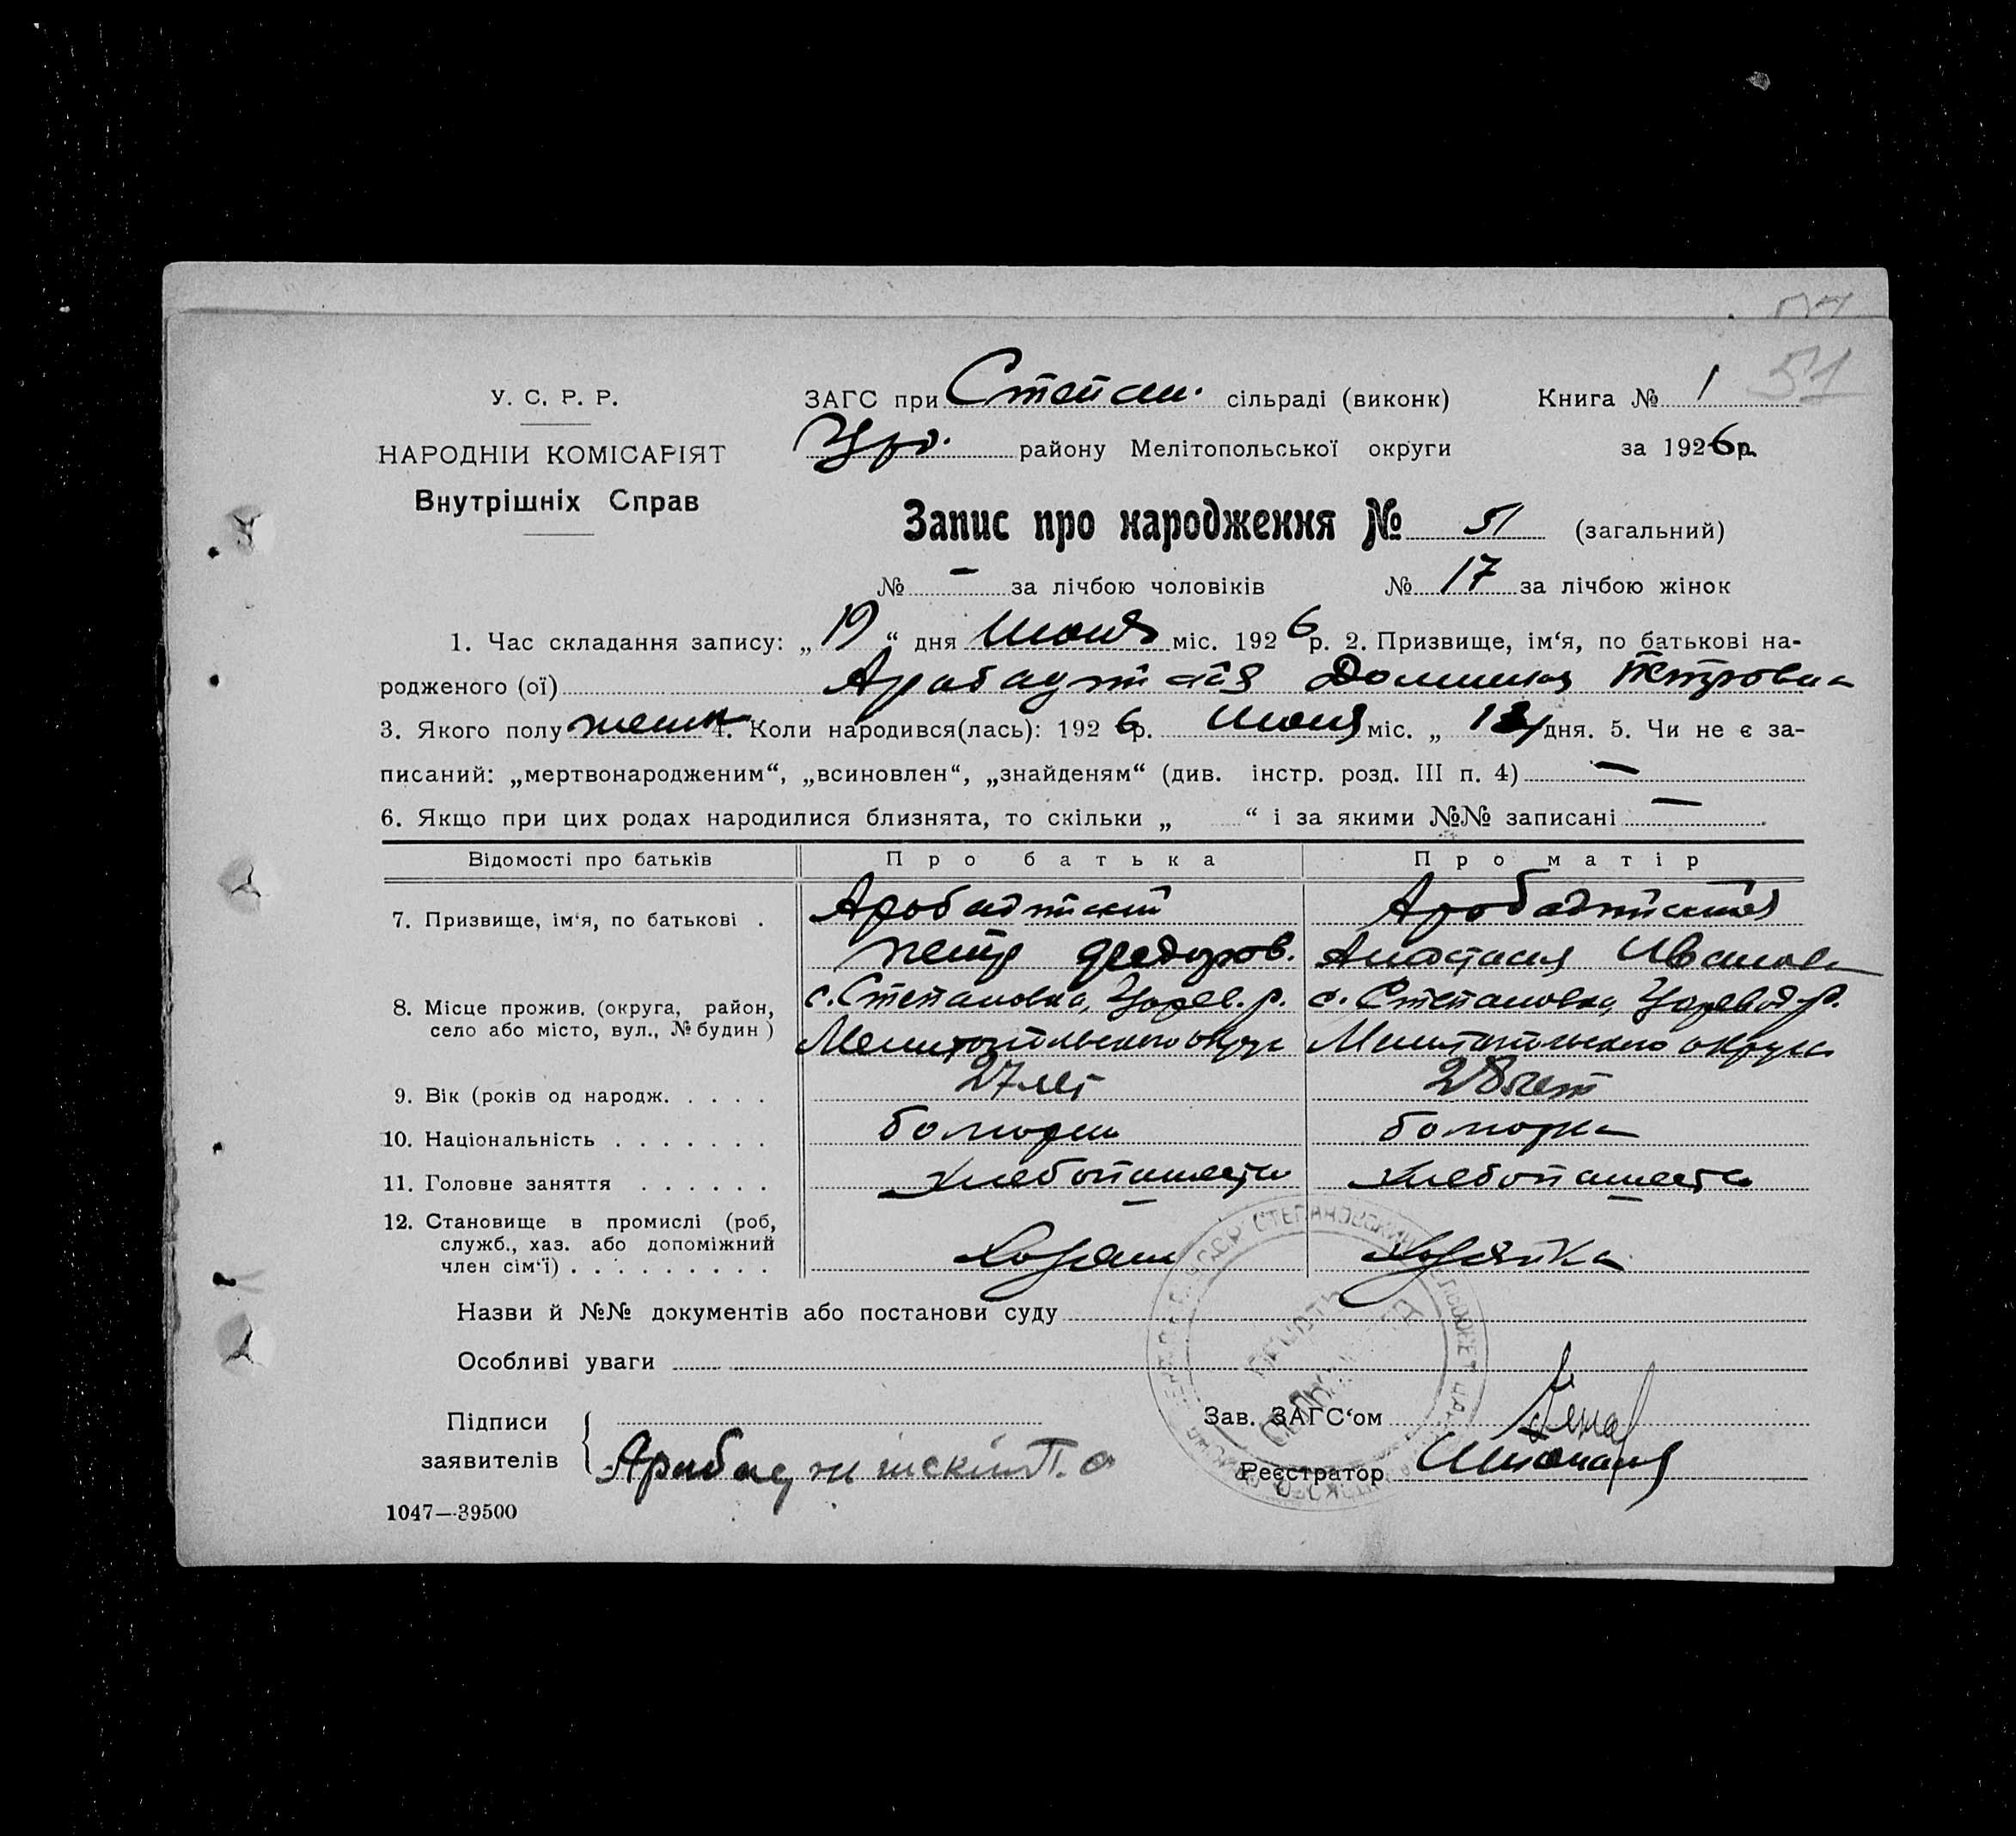 51
У. С. Р. Р.
НАРОДНІЙ КОМІСАРІЯТ
Внутрішніх Справ
ЗАГС при Степан. сільраді (виконк) Книга № 1
району Мелітопольської округи за 1926 р.
Запис про народження № 51 (загальний)
№ — за лічбою чоловіків № 17 за лічбою жінок
1. Час складання запису: „19“ дня Июня міс. 1926 р. 2. Призвище, ім‘я, по батькові на-
родженого (ої) Петровна
3. Якого полу женск 4. Коли народився(лась): 1926 р. Июня міс. „ дня. 5. Чи не є за-
писаний: „мертвонародженим“, „всиновлен“, „знайденям“ (див. інстр. розд. III п. 4) —
6. Якщо при цих родах народилися близнята, то скільки „ “ і за якими №№ записані —
Відомості про батьків Про батька Про матір
7. Призвище, ім‘я, по батькові . Арабаджиский Арабаджиская
Петр Федоров. Анастасия Иванов
8. Місце прожив. (округа, район, с. Степановка, Царев. р. с. Степановка, Царевод. р.
село або місто, вул., № будин ) Мелитопольского округа Мелитопольского округа
9. Вік (років од народж. . . . . 27 лет 28 лет
10. Національність . . . . . . . болгарин болгарка
11. Головне заняття . . . . . . хлебопашество хлебопашество
12. Становище в промислі (роб,
служб., хаз. або допоміжний хозяин хозяйка
член сім‘ї) . . . . . . . . .
Назви й №№ документів або постанови суду
Особливі уваги
Підписи Зав. ЗАГС‘ом
заявителів Реєстратор
1047—39500